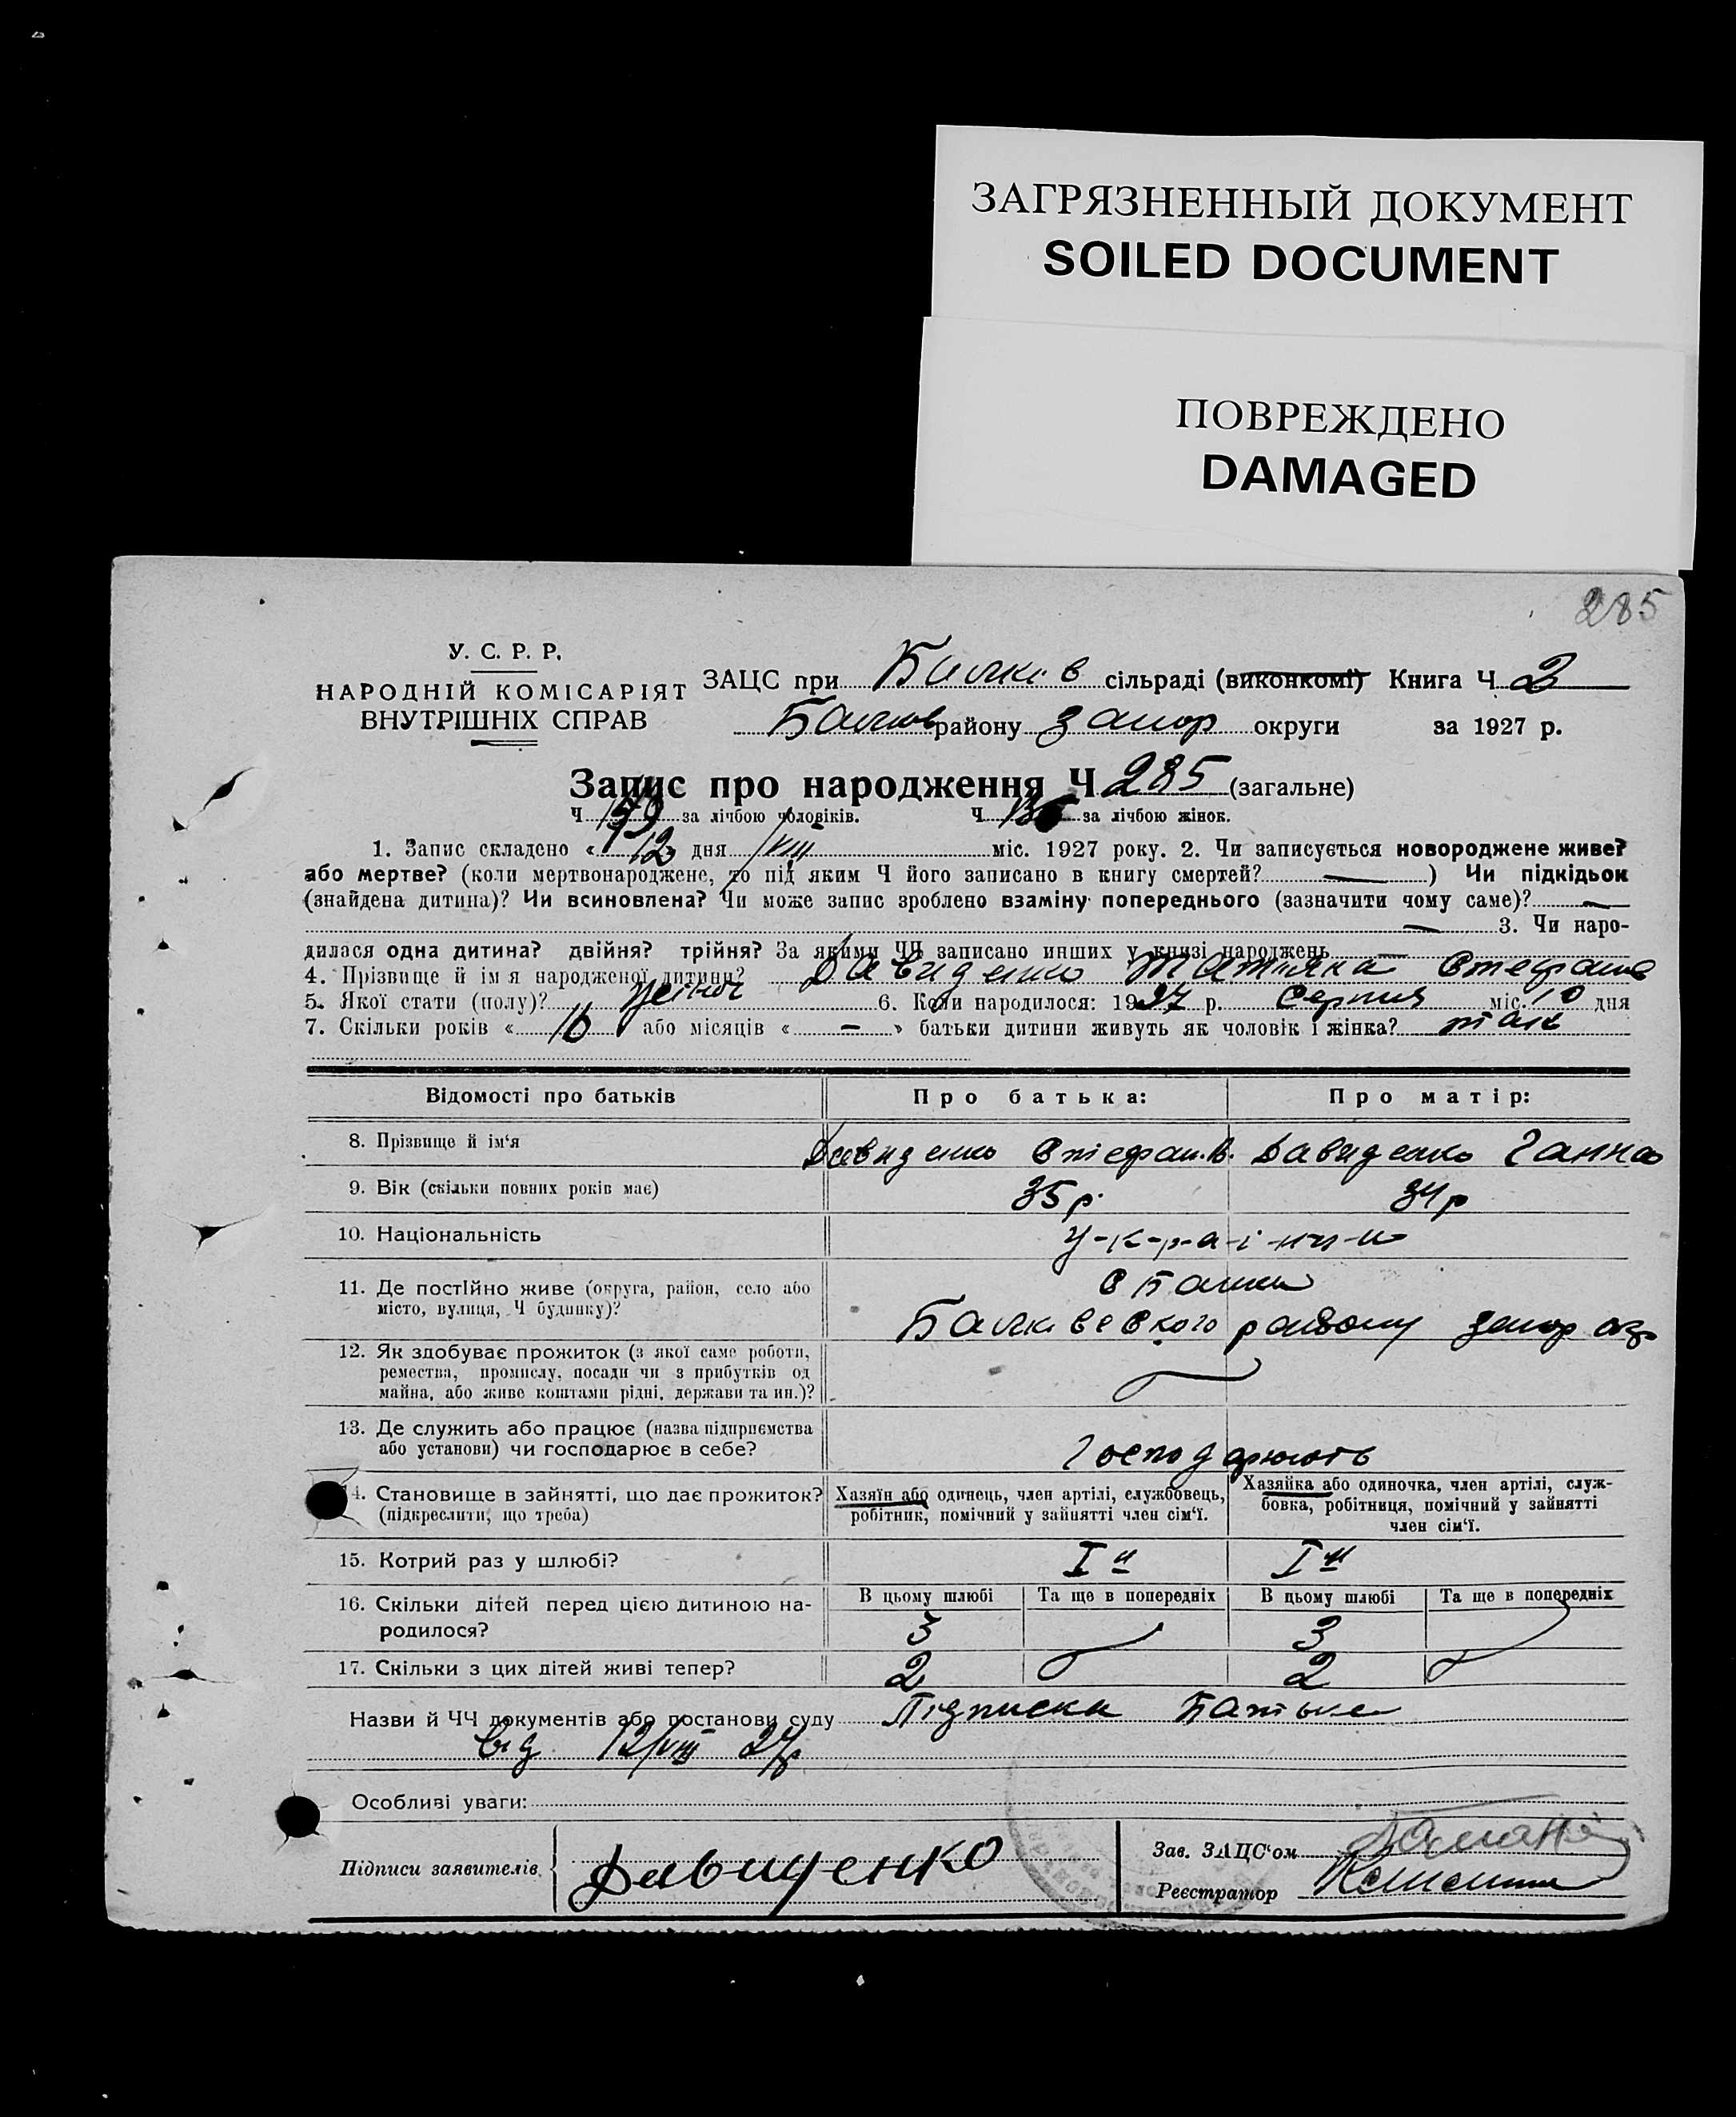 ЗАГРЯЗНЕННЫЙ ДОКУМЕНТ
SOILED DOCUMENT
ПОВРЕЖДЕНО
DAMAGED
285
У. С. Р. Р.
НАРОДНІЙ КОМІСАРІЯТ
ВНУТРІШНІХ СПРАВ
ЗАЦС при Балків сільраді (виконкомі) Книга Ч 2
Балков району Запор округи за 1927 р.
Запис про народження Ч 285 (загальне)
Ч 149 за лічбою чоловіків. Ч 136 за лічбою жінок.
1. Запис складено « 12 » дня VIII міс. 1927 року. 2. Чи записується новороджене живе?
або мертве? (коли мертвонароджене, то під яким Ч його записано в книгу смертей? — ) Чи підкідьок
(знайдена дитина)? Чи всиновлена? Чи може запис зроблено взаміну попереднього (зазначити чому саме)? —
— 3. Чи наро-
дилася одна дитина? двійня? трійня? За якими ЧЧ записано инших у книзі народжень —
4. Прізвище й ім'я народженої дитини? Давиденко Татіяна Стефанів
5. Якої стати (полу)? жіноч 6. Коли народилося: 1927 р. Серпня міс. 10 дня
7. Скільки років « 16 » або місяців « — » батьки дитини живуть як чоловік і жінка? так
Відомості про батьків Про батька: Про матір:
8. Прізвище й ім'я Давиденко Стефан. В. Давиденко Ганна
9. Вік (скільки повних років має) 35 р. 34 р
10. Національність у-к-р-а-і-н-ц-и
11. Де постійно живе (округа, район, село або
місто, вулиця, Ч будинку)? с Балки
Балківського району запор окр
12. Як здобуває прожиток (з якої саме роботи,
ремества, промислу, посади чи з прибутків од
майна, або живе коштами рідні, держави та ин.)?
13. Де служить або працює (назва підприємства
або установи) чи господарює в себе? Господарюють
14. Становище в зайнятті, що дає прожиток?
(підкреслити, що треба)
Хазяїн або одинець, член артілі, службовець,
робітник, помічний у зайнятті член сім'ї.
Хазяйка або одиночка, член артілі, служ-
бовка, робітниця, помічний у зайнятті
член сім'ї.
15. Котрий раз у шлюбі? I й I й
16. Скільки дітей перед цією дитиною на-
родилося?
В цьому шлюбі Та ще в попередніх В цьому шлюбі Та ще в попередніх
3 3
17. Скільки з цих дітей живі тепер? 2 2
Назви й ЧЧ документів або постанови суду Підписка Батька
від 12/VIII 27р
Особливі уваги:
Підписи заявителів Давиденко
Зав. ЗАЦС'ом
Реєстратор